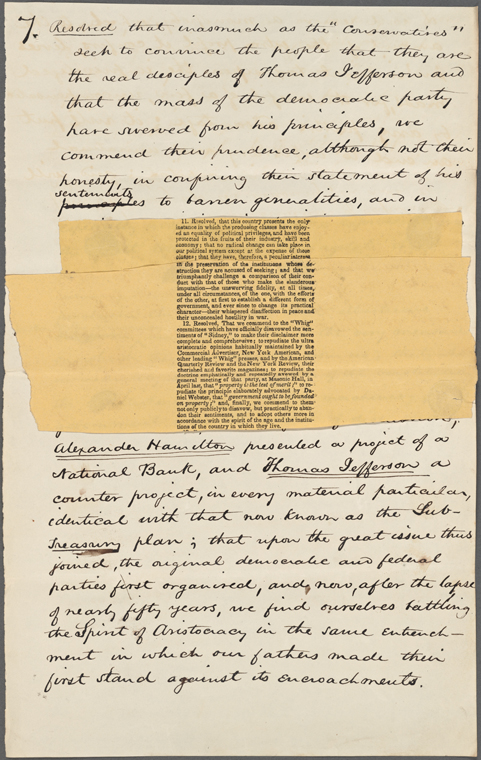 7. Resolved that inasmuch as the "Conservatives"
seek to convince the people that they are
the real desciples of Thomas Jefferson and
that the mass of the democratic party
have swerved from his principles, we
commend their prudence, although not their
honesty, in confining their statement of his
sentements
principles to barren generalities, and in
11. Resolved, that this country presents the only
instance in which the producing classes have enjoy-
ed an equality of political privileges, and have been
protected in the fruits of their industry, skill and
economy; that no radical change can take place in
our political system except at the expense of those
classes; that they have, therefore, a peculiar interest
in the preservation of the institutions whose de-
struction they are accused of seeking; and that we
triumphantly challenge a comparison of their con-
duct with that of those who make the slanderous
imputation—the unswerving fidelity, at all times,
under all circumstances, of the one, with the efforts
of the other, at first to establish a different form of
government, and ever since to change its practical
character—their whispered disaffection in peace and
their unconcealed hostility in war.
12. Resolved, That we commend to the "Whig"
committees which have officially disavowed the sen-
timents of "Sidney," to make their disclaimer more
complete and comprehensive; to repudiate the ultra
aristocratic opinions habitually maintained by the
Commercial Advertiser, New York American, and
other leading "Whig" presses, and by the American
Quarterly Review and the New York Review, their
cherished and favorite magazines; to repudiate the
doctrine emphatically and repeatedly avowed by a
general meeting of that party, at Masonic Hall, in
April last, that "property is the test of merit;" to re-
pudiate the principle elaborately advocated by Da-
niel Webster, that "government ought to be founded
on property;" and, finally, we commend to them
not only publicly to disavow, but practically to aban-
don their sentiments, and to adopt others more in
accordance with the spirit of the age and the institu-
tions of the country in which they live.
Alexander Hamilton presented a project of a
National Bank, and Thomas Jefferson a
counter project, in every material particular,
identical with that now known as the Sub-
Treasury plan; that upon the great issue thus
joined, the original democratic and federal
parties first organised, and, now, after the lapse
of nearly fifty years, we find ourselves battling
the Spirit of Aristocracy in the same entrench-
ment in which our fathers made their
first stand against its encroachments.